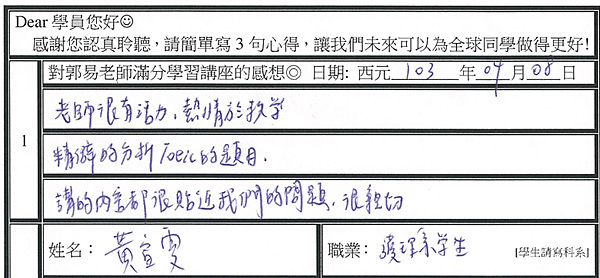 Dear 學員您好☺
感謝您認真聆聽，請簡單寫 3 句心得，讓我們未來可以為全球同學做得更好!
對郭易老師滿分學習講座的感想◎ 日期: 西元 103 年 04 月 08 日
1
老師很有活力、熱情於教学
精僻的分析 Toeic 的題目.
講的內容都很貼近我們的問題、很親切
姓名： 黃宣雯
職業： 護理系学生 [學生請寫科系]